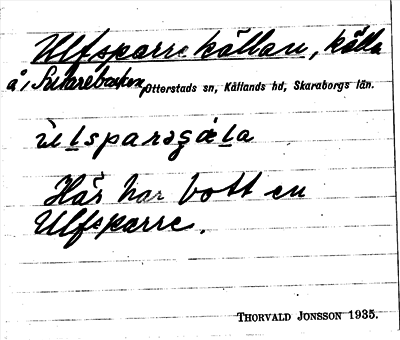 Ulfsparre källan, källa
å, Otterstads sn, Kållands hd, Skaraborgs län.
Här har bott en
Ulfsparre.
THORVALD JONSSON 1935.